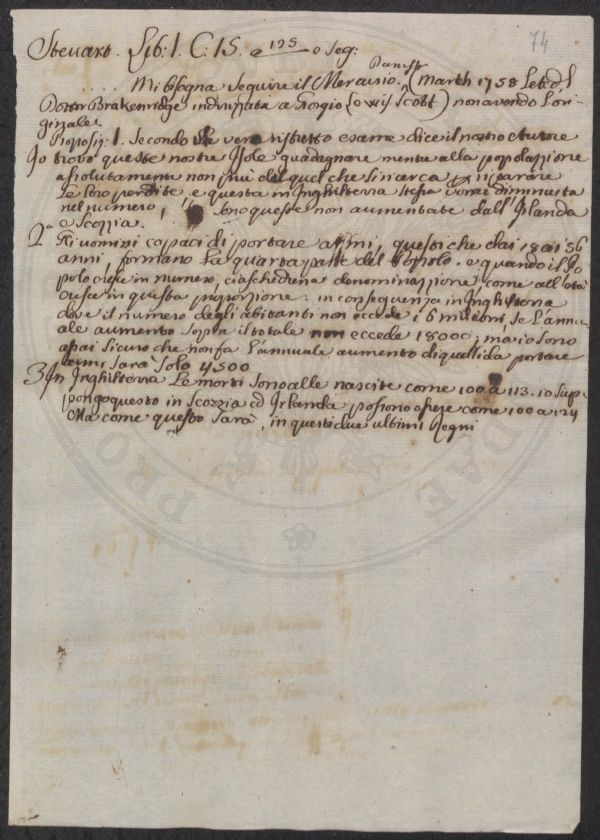 74
Steuart. Lib: I. C: 15. a 195 e Seg:
.... Mi bisogna seguire il Mercurio. (March 1758 Let: d
Dottor Brakenridge indirizzata a Giorgio Lewis Scott) non avendo l'ori-
ginale
Proposiz: 1. Secondo la vero ristretto esame dice il nostro Autore
Io trovo queste nostre Isole guadagnare mente alla popolazione
assolutamente non più del quel che si ricerca p riparare
le loro perdite, e questa in Inghilterra stessa vorrei diminuita
nel numero, sono queste non aumentate dall'Irlanda
e Scozzia.
2a Gli uomini capaci di portare armi, questi che dai 18 ai 56
anni, formano la quarta parte del Popolo. e quando il Po
polo cresce in numero, ciascheduna denominazione come all'età
cresce in questa proporzione: in conseguenza in Inghilterra
dove il numero degli abitanti non eccede i 6 milioni, se l'annu-
ale aumento sopra il totale non eccede 18000; ma io sono
assai sicuro che non fa l'annuale aumento di quelli da portare
armi, sarà solo 4,500
3 In Inghilterra le morti sono alle nascite come 100 a 113. io sup-
pongo questo in Scozzia ed Irlanda possono essere come 100 a 124
Ma come questo sarà, in questi due ultimi Regni